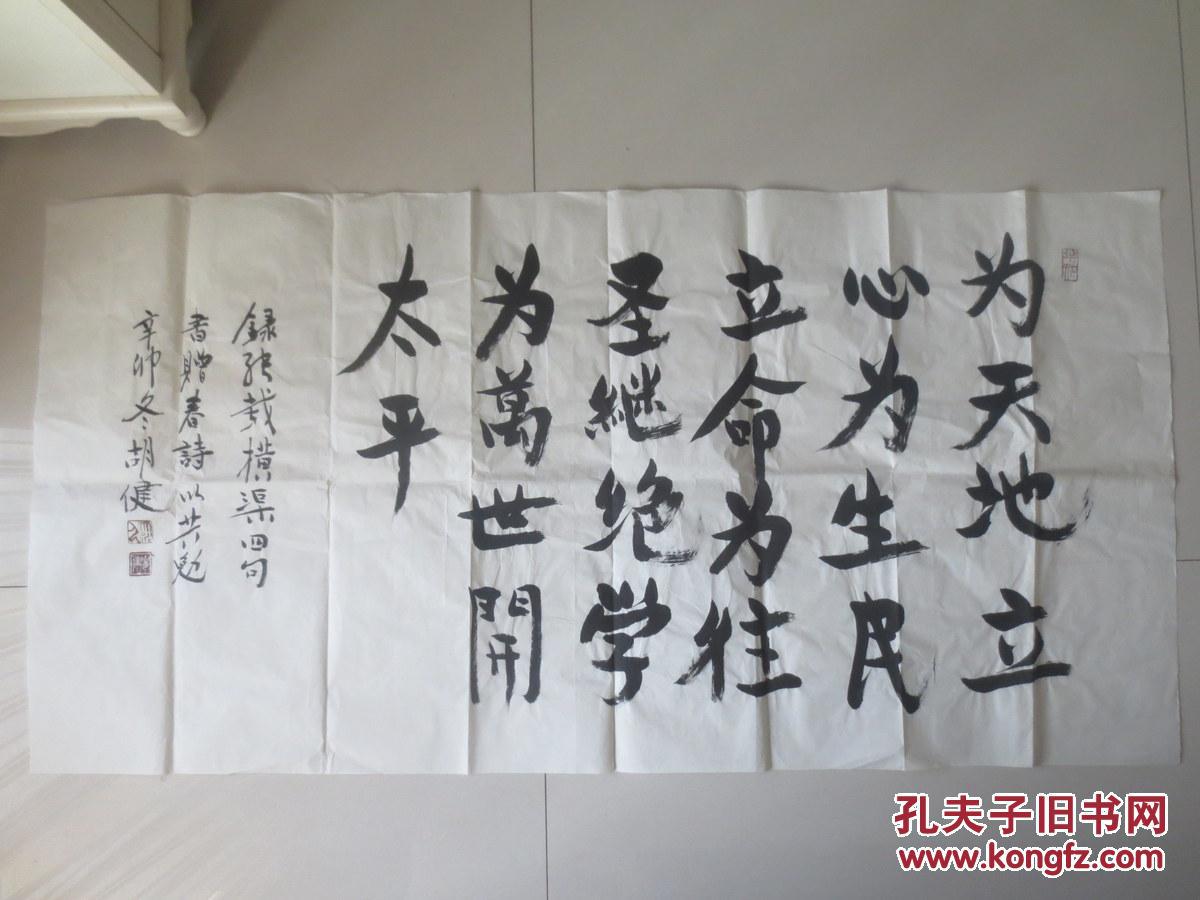 为天地立
心为生民
立命为往
圣继绝学
为萬世開
太平
録张载横渠四句
书赠春詩以共勉
辛卯冬胡健
孔夫子旧书网
www.kongfz.com